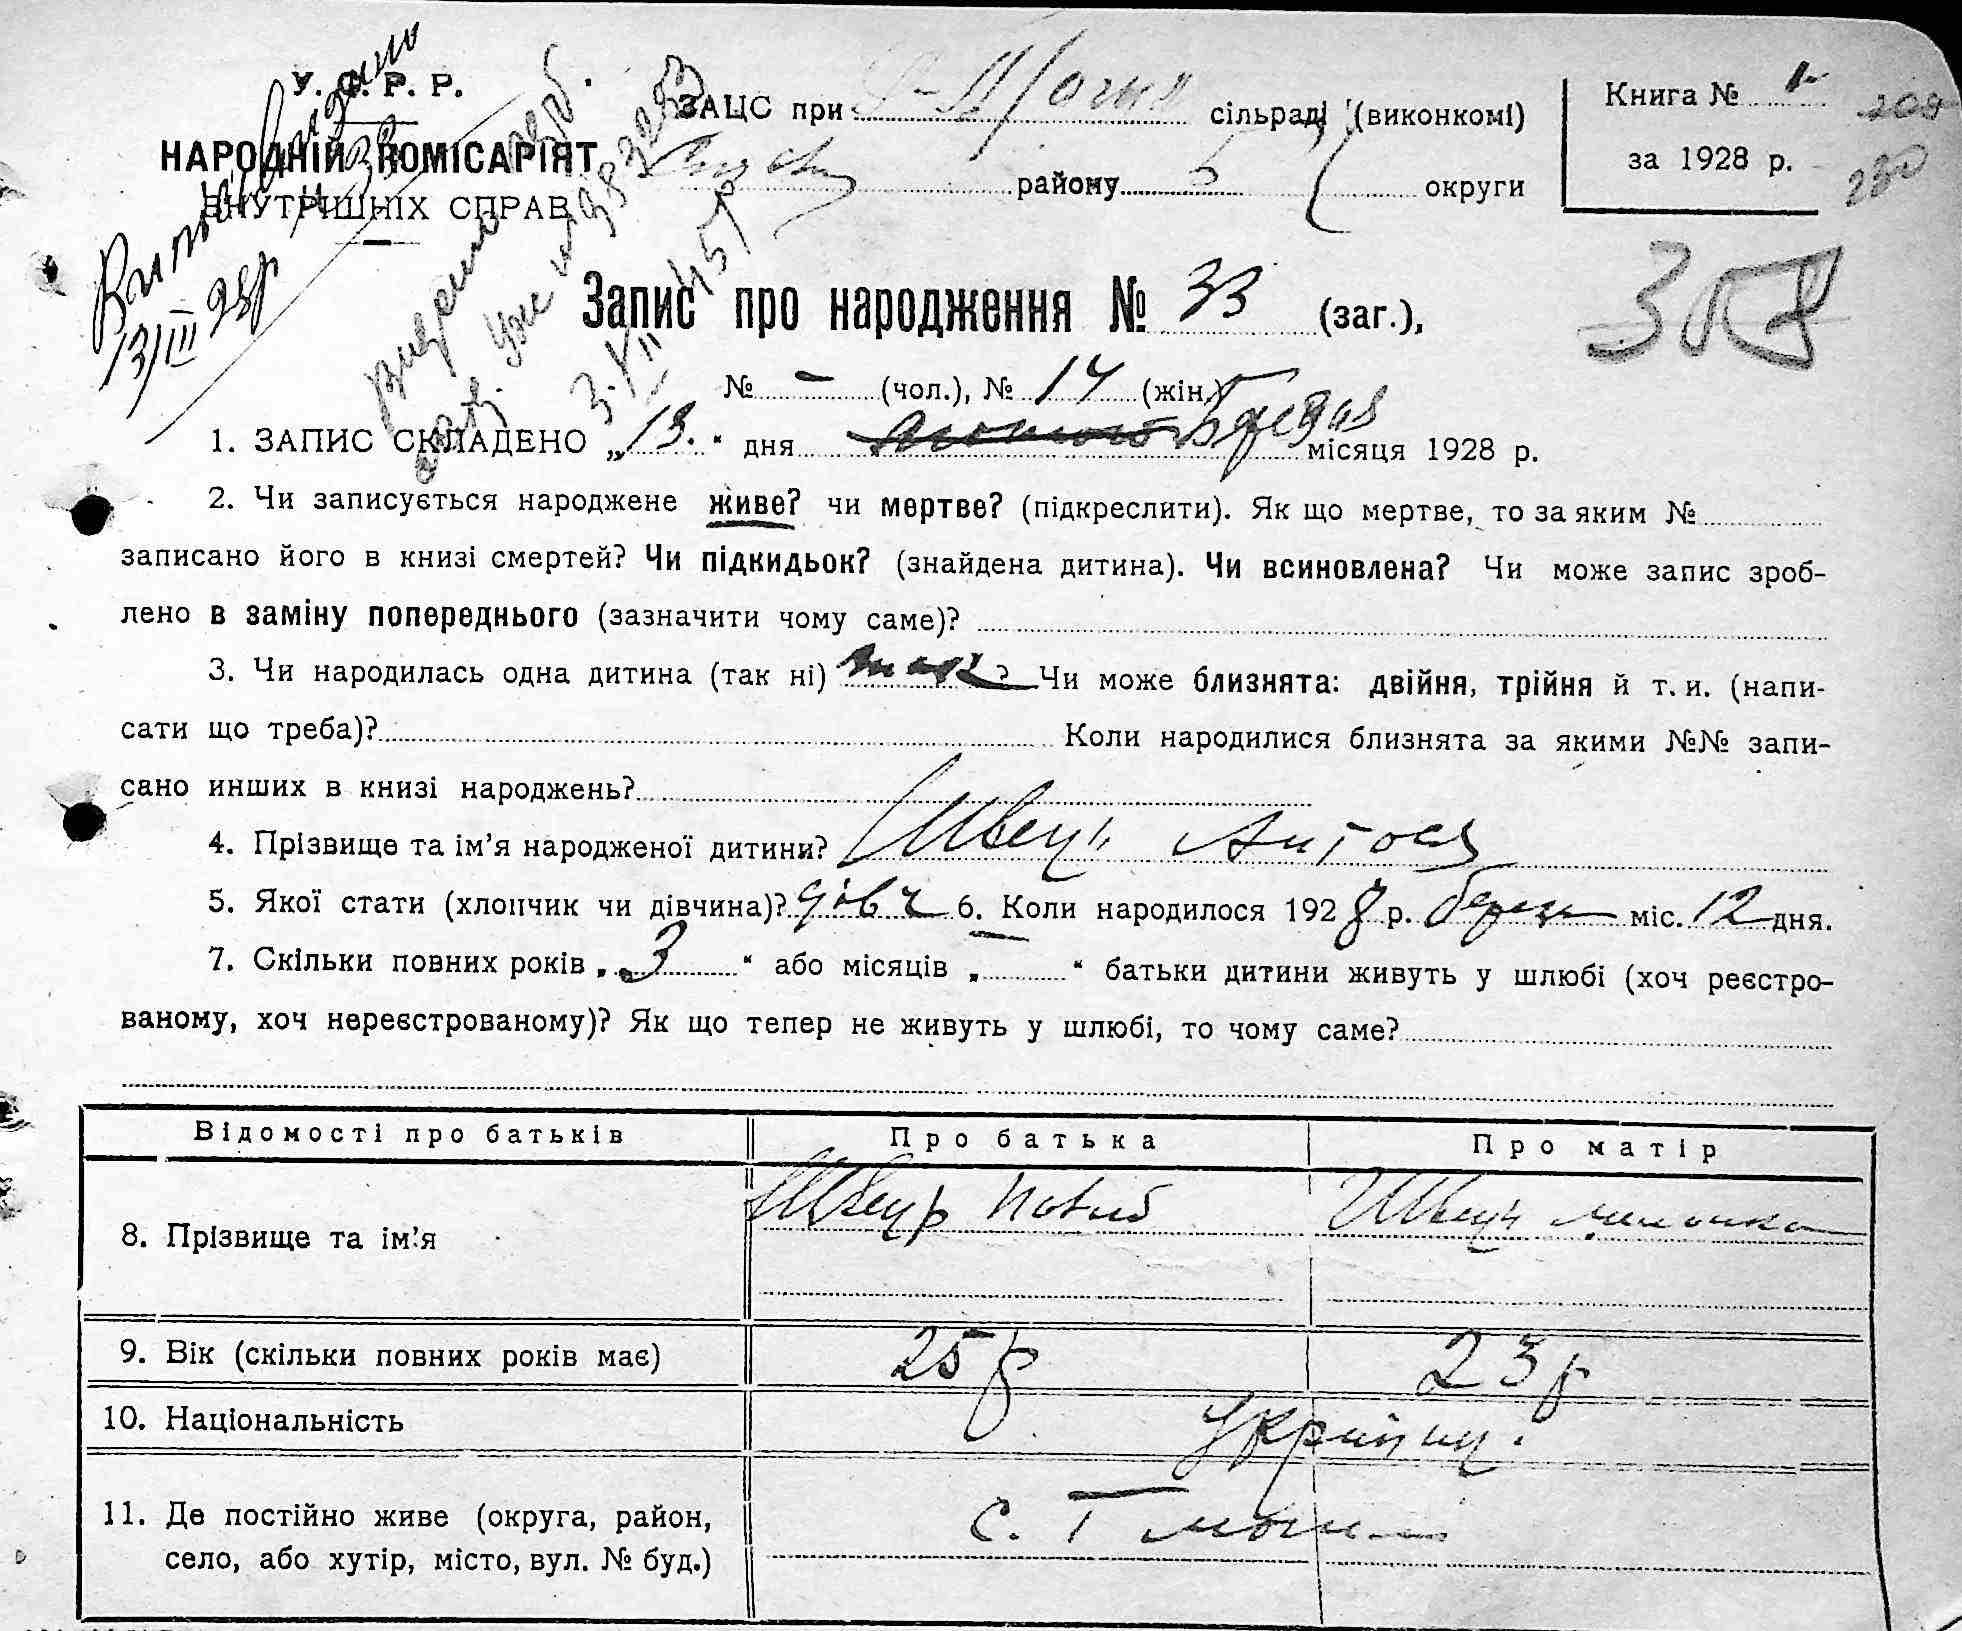 У. С. Р. Р.
НАРОДНІЙ КОМІСАРІЯТ
ВНУТРИШНІХ СПРАВ
13/III 28р
ЗАЦС при сільраді (виконкомі)
району округи
Книга № 1
за 1928 р.
209
230
Запис про народження № 33 (заг.),
№ – (чол.), № 14 (жін.)
1. ЗАПИС СКЛАДЕНО „13.“ дня лютого Березня місяця 1928 р.
2. Чи записується народжене живе? чи мертве? (підкреслити). Як що мертве, то за яким №
записано його в книзі смертей? Чи підкидьок? (знайдена дитина). Чи всиновлена? Чи може запис зроб-
лено в заміну попереднього (зазначити чому саме)?
3. Чи народилась одна дитина (так ні) так? Чи може близнята: двійня, трійня й т. и. (напи-
сати що треба)? Коли народилися близнята за якими №№ запи-
сано инших в книзі народжень?
4. Прізвище та ім'я народженої дитини? Швець Антося
5. Якої стати (хлопчик чи дівчина)? дівч 6. Коли народилося 1928 р. березн міс. 12 дня.
7. Скільки повних років „3“ або місяців „–“ батьки дитини живуть у шлюбі (хоч реєстро-
ваному, хоч нереєстрованому)? Як що тепер не живуть у шлюбі, то чому саме?
Відомості про батьків Про батька Про матір
8. Прізвище та ім'я Швець Швець
9. Вік (скільки повних років має) 25 р 23 р
10. Національність Україн.
11. Де постійно живе (округа, район, с.
село, або хутір, місто, вул. № буд.)